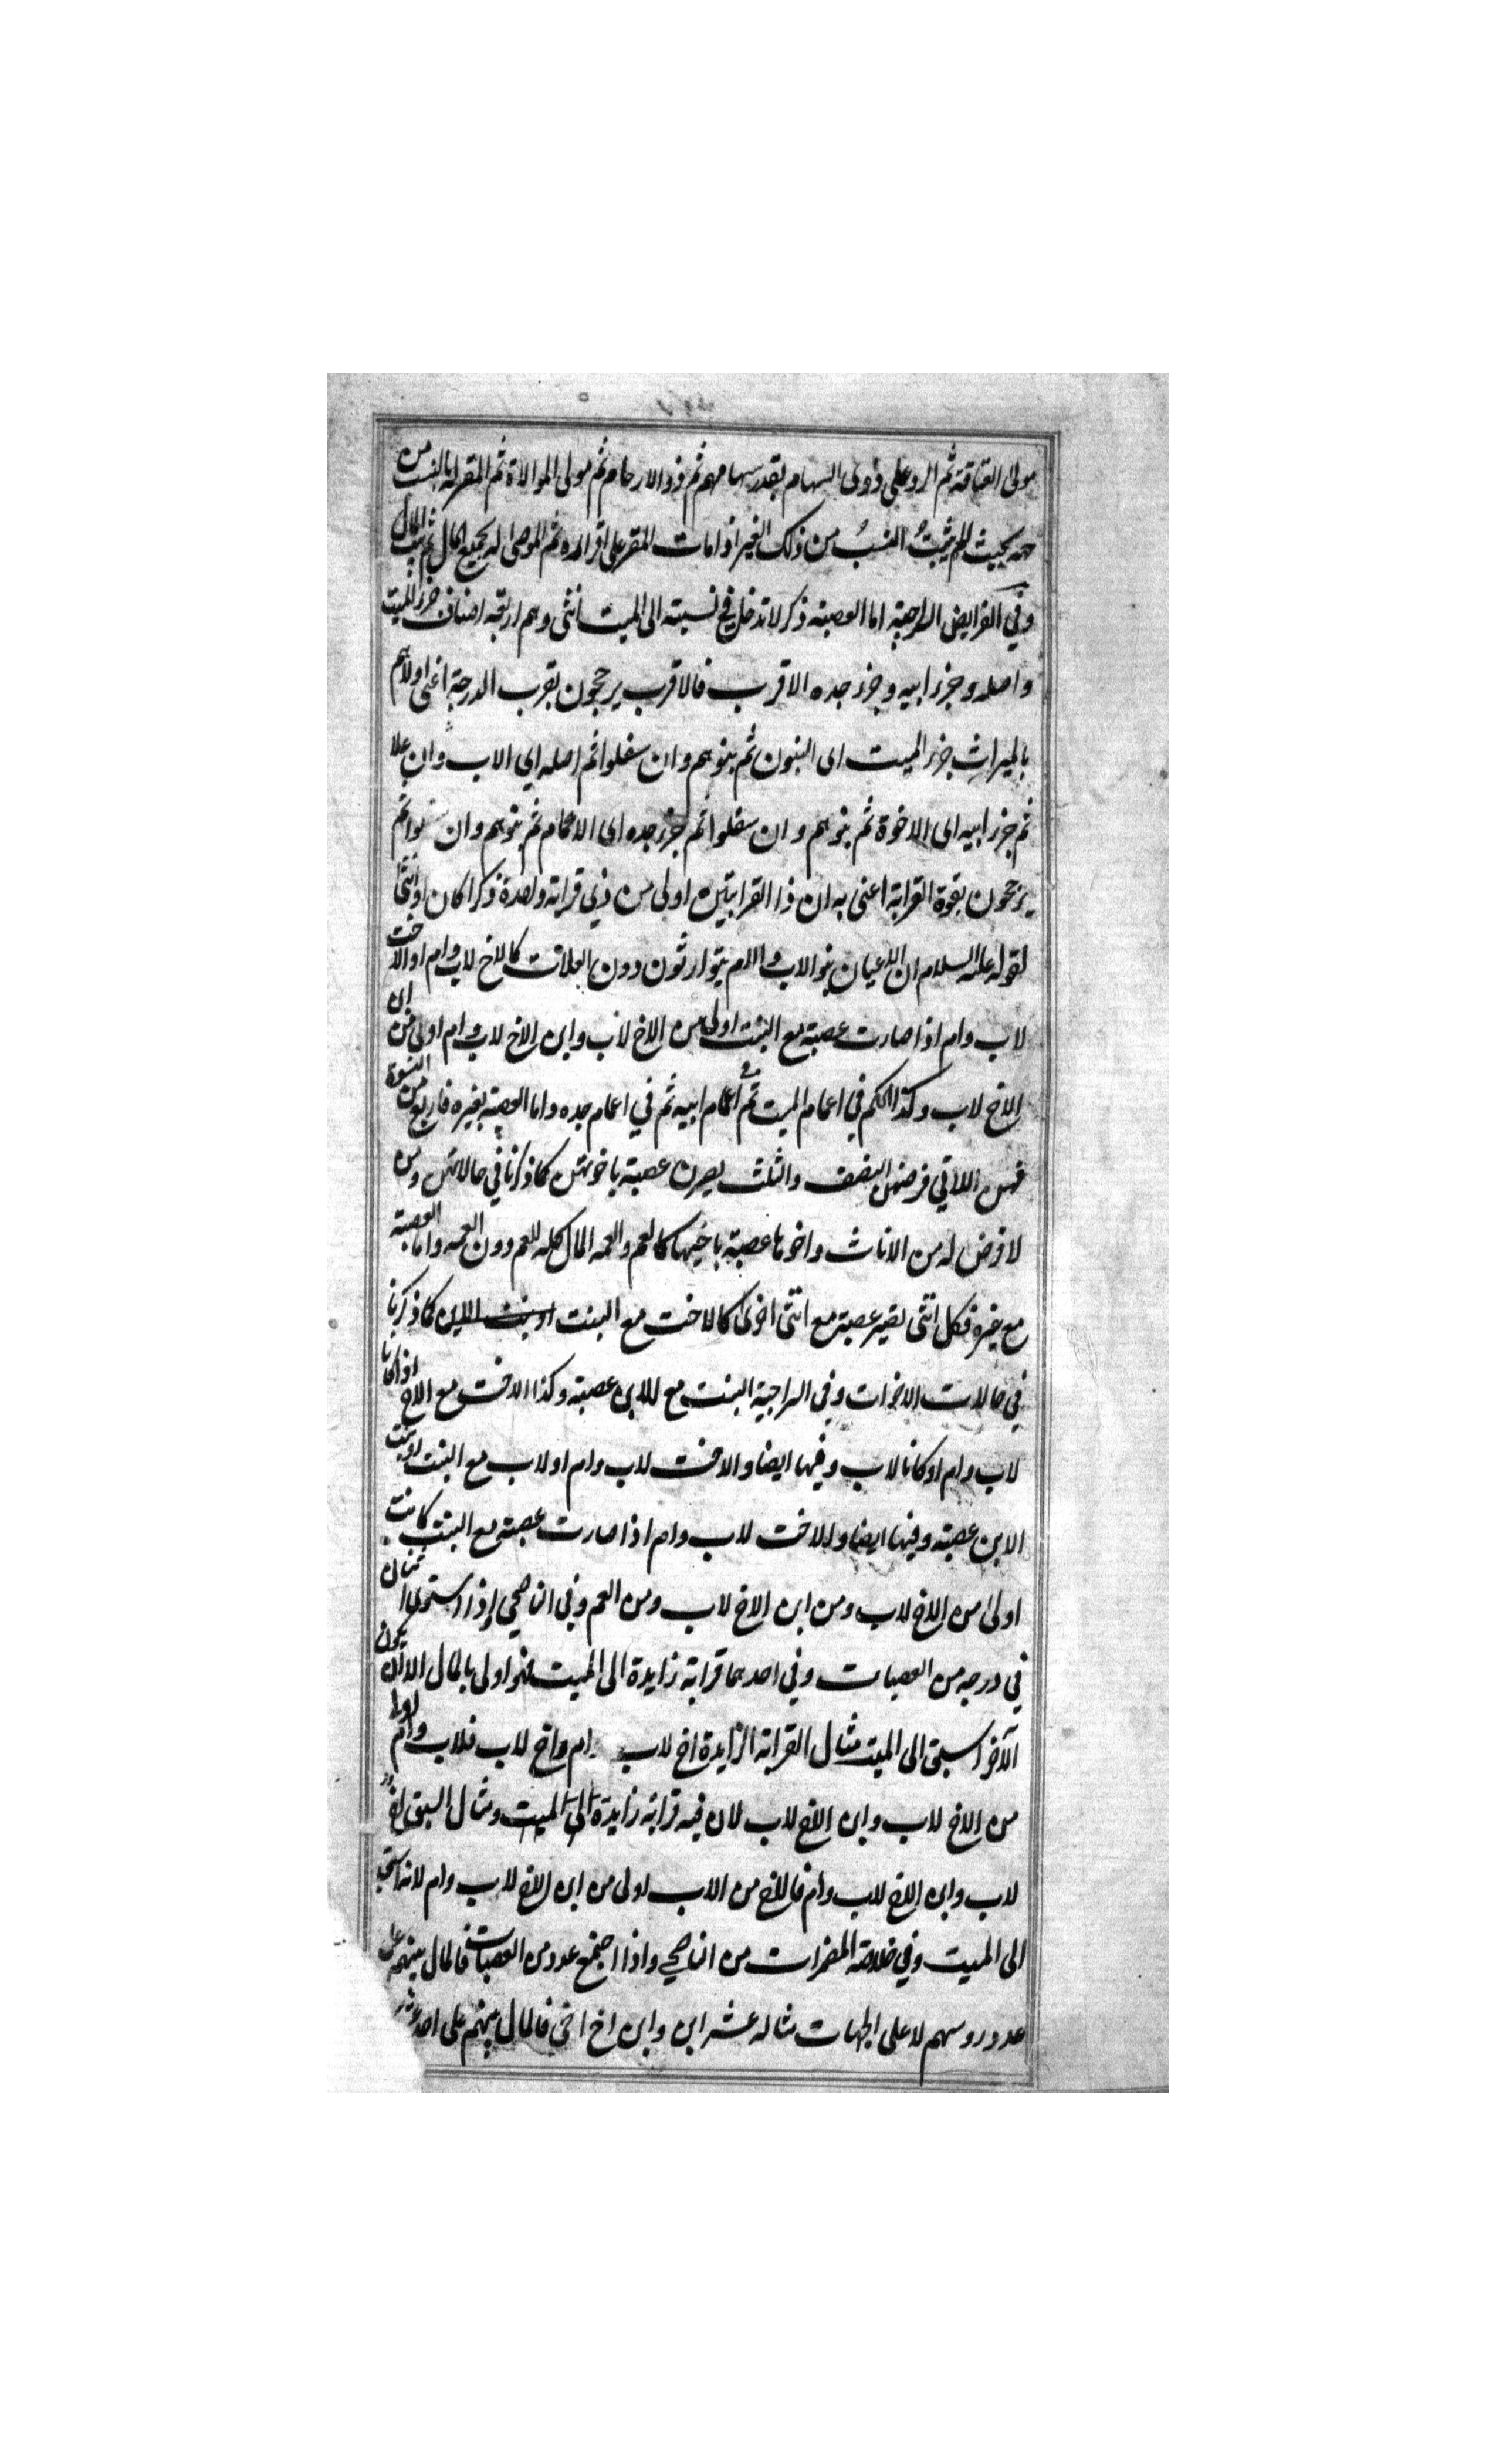 مولى العتاقة ثم الرد على ذوى السهام بقدر سهامهم ثم ذو الارحام ثم مولى الموالاة ثم المقر له بالنسب من
جهة بحيث لم يثبتُ النسبُ من ذلك الغير اذا مات المقر على اقراره ثم الموصى له بجميع المال ثم بيت المال
وفي الفرايض السراجية اما العصبة ذكر لا تدخل في نسبته الى الميت انثى وهم اربعة اصناف جزء الميت
واصله وجزء ابيه وجزء جده الاقرب فالاقرب يرجحون بقرب الدرجة اعنى اولاهم
بالميراث جزء الميت اى البنون ثم بنوهم وان سفلوا ثم اصله اي الاب وان علا
ثم جزء ابيه اى الاخوة ثم بنوهم وان سفلوا ثم جزء جده اى الاعمام ثم بنوهم وان سفلوا ثم
يرجحون بقوة القرابة اعنى به ان ذا القرابتين اولى من ذي قرابة واحدة ذكرا كان او انثى
لقوله عليه السلام ان الاعيان بنو الاب والام يتوارثون دون العلات كالاخ لاب وام او الاخت
لاب وام اذا صارت عصبة مع البنت اولى من الاخ لاب وابن الاخ لاب وام اولى من ابن
الاخ لاب وكذا الحكم في اعمام الميت ثم في اعمام ابيه ثم في اعمام جده واما العصبة بغيره فاربع من النسوة
فهن اللاتي فرضهن النصف والثلث يصرن عصبة باخوتهن كما ذكرنا في حالاتهن ومن
لا فرض له من الاناث واخوها عصبة باخيها كالعم والعمه المال كله للعم دون العمه واما العصبة
مع غيره فكل انثى تصير عصبة مع انثى اخرى كالاخت مع البنت او بنت الابن كما ذكرنا
في حالات الاخوات وفى السراجية البنت مع الابن عصبة وكذا الاخت مع الاخ اذا كانا
لاب وام او كانا لاب وفيها ايضا والاخت لاب وام او لاب مع البنت او بنت
الابن عصبة وفيها ايضا والاخت لاب وام اذا صارت عصبة مع البنت كانت
اولى من الاخ لاب ومن ابن الاخ لاب ومن العم وفى الناصحي واذا استوى اثنان
في درجه من العصبات وفي احدهما قرابة زايدة الى الميت فهو اولى بالمال الا ان يكون
الآخر اسبق الى الميت مثال القرابة الزايدة اخ لاب وام واخ لاب فلاب وام اولى
من الاخ لاب وابن الاخ لاب لان فيه قرابة زايدة الى الميت ومثال السبق اخ
لاب وابن الاخ لاب وام فالاخ من الاب اولى من ابن الاخ لاب وام لانه اسبق
الى الميت وفي خلاصة المضمرات من الناصحي واذا اجتمع عدد من العصبات فالمال بينهم على
عدد روسهم لا على الجهات مثاله عشر ابن وابن اخ اخى فالمال بينهم على احد عشر